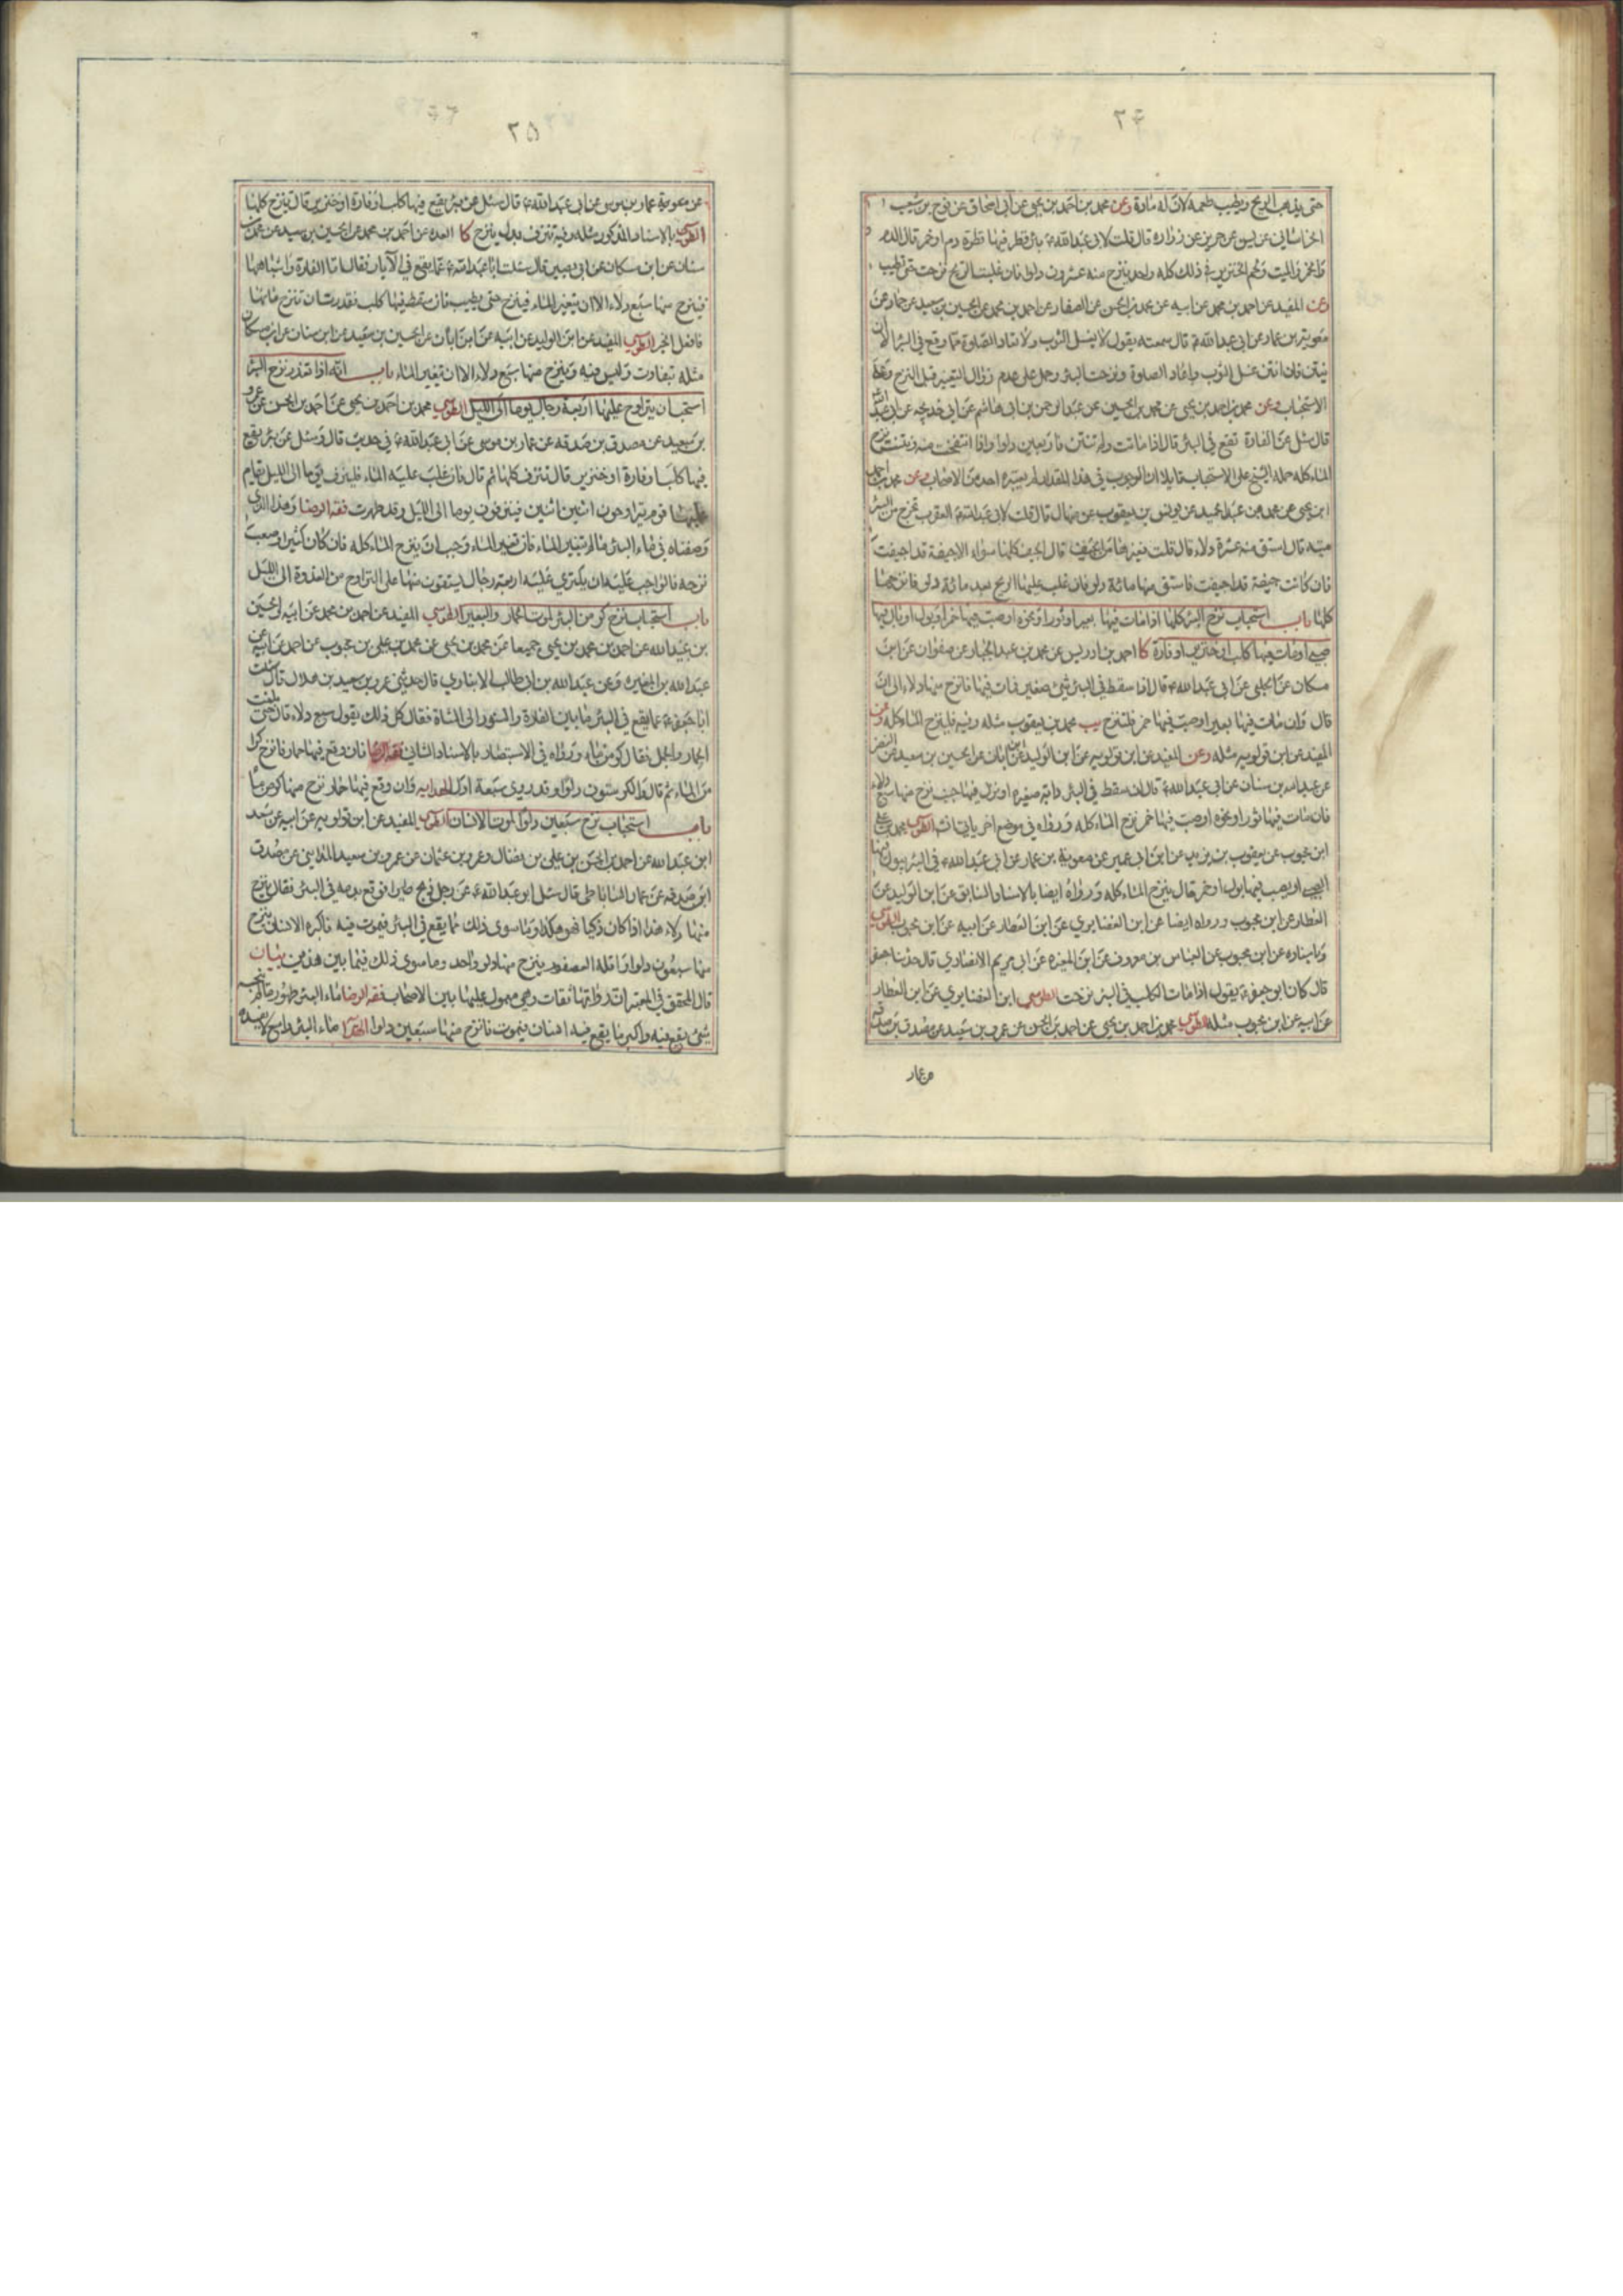 ٢۴
حتى يذهب الريح ويطيب طعمه لان له مادة وعن محمد بن احمد بن يحيى عن ابى اسحاق عن نوح بن شعيب
الخراسانى عن يس عن حريز عن زرارة قال قلت لابى عبد الله ع بئر قطر فيها قطرة دم او خمر قال الدم
والخمر والميت ولحم الخنزير فى ذلك كله واحد ينزح منه عشرون دلوا فان غلبت الريح نزحت حتى تطيب
وعن المفيد عن احمد بن محمد عن ابيه عن محمد بن الحسن عن الصفار عن احمد بن محمد عن الحسين بن سعيد عن حماد عن
معوية بن عمار عن ابى عبد الله ع قال سمعته يقول لا يغسل الثوب ولا تعاد الصلوة مما وقع فى البئر الا ان
ينتن فان انتن غسل الثوب واعاد الصلوة ونزحت البئر وحمل على عدم زوال التغير قبل النزح وعلى
الاستحباب وعن محمد بن احمد بن يحيى عن محمد بن الحسين عن عبد الرحمن بن ابى هاشم عن ابى خديجه عن ابى عبد الله
قال سئل عن الفارة تقع فى البئر قال اذا ماتت ولم تنتن فاربعين دلوا واذا انتفخت فيه ونتنت نزح
الماء كله حمله الشيخ على الاستحباب قايلا ان الوجوب فى هذا المقدار لم يعتبره احد من الاصحاب وعن محمد بن احمد
ابن يحيى عن محمد بن عبد الحميد عن يونس بن يعقوب عن منهال قال قلت لابى عبد الله ع العقرب تخرج من البئر
ميتة قال استق منه عشرة دلاء قال قلت فغيرها من الجيف قال الجيف كلها سواء الا جيفة قد اجيفت
فان كانت جيفة قد اجيفت فاستق منها مائة دلو فان غلب عليها الريح بعد مائة دلو فانزحها
كلها باب استحباب نزح البئر كلها اذا مات فيها بعير او ثور او نحوه او صب فيها خمر او بول او بال فيها
صبى او مات فيها كلب او خنزير او فارة كا احمد بن ادريس عن محمد بن عبد الجبار عن صفوان عن ابن
مسكان عن الحلبى عن ابى عبد الله ع قال اذا سقط فى البئر شئ صغير فمات فيها فانزح منها دلاء الى ان
قال وان مات فيها بعير او صب فيها خمر فلتنزح يب محمد بن يعقوب مثله وفيه فلينزح الماء كله وعن
المفيد عن ابن قولويه مثله وعن المفيد عن ابن قولويه عن ابن الوليد عن ابن ابان عن الحسين بن سعيد عن النضر
عن عبد الله بن سنان عن ابى عبد الله ع قال ان سقط فى البئر دابة صغيره او نزل فيها جنب نزح منها سبع دلاء
فان مات فيها ثور او نحوه او صب فيها خمر نزح الماء كله ورواه فى موضع اخر ياتى انش الطوسى محمد بن على
ابن محبوب عن يعقوب بن يزيد عن ابن ابى عمير عن معوية بن عمار عن ابى عبد الله ع فى البئر يبول فيها
الصبى او يصب فيها بول او خمر قال ينزح الماء كله ورواه ايضا بالاسناد السابق عن ابن الوليد عن
العطار عن ابن محبوب ورواه ايضا عن ابن الغضايرى عن ابن العطار عن ابيه عن ابن محبوب الطوسى
وباسناده عن ابن محبوب عن العباس بن معروف عن ابن المغيره عن ابى مريم الانصارى قال حدثنا جعفر
قال كان ابو جعفر ع يقول اذا مات الكلب فى البئر نزحت الطوسى ابن الغضايرى عن ابن العطار
عن ابيه عن ابن محبوب مثله الطوسى محمد بن احمد بن يحيى عن احمد بن الحسن عن عمرو بن سعيد عن مصدق بن صدقه
عن عمار
٢۵
قال سئل عن بئر يقع فيها كلب او فارة او خنزير قال تنزح كلها
الطوسى بالاسناد المذكور مثله وفيه تنزف بدل ينزح كا العده عن احمد بن محمد عن الحسين بن سعيد عن محمد بن
سنان عن ابن مسكان عن ابى بصير قال سئلت ابا عبد الله ع عما يقع فى الآبار فقال اما الفارة واشباهها
فينزح منها سبع دلاء الا ان يتغير الماء فينزح حتى يطيب فان سقط فيها كلب فقدرت ان تنزح ماءها
فافعل الخبر الطوسى المفيد عن ابن الوليد عن ابيه عن ابن ابان عن الحسين بن سعيد عن ابن سنان عن ابن مسكان
مثله بتفاوت وليس فيه وينزح منها سبع دلاء الا ان يتغير الماء باب انه اذا تعذر نزح البئر
استحب ان يتراوح عليها اربعة رجال يوما الى الليل الطوسى محمد بن احمد بن يحيى عن احمد بن الحسن عن عمرو
بن سعيد عن مصدق بن صدقه عن عمار بن موسى عن ابى عبد الله ع فى حديث قال وسئل عن بئر يقع
فيها كلب او فارة او خنزير قال تنزف كلها ثم قال فان غلب عليه الماء فلينزف يوما الى الليل ثم يقام
عليها قوم يتراوحون اثنين اثنين فينزفون يوما الى الليل وقد طهرت فقه الرضا وهذا الذى
وصفناه فى ماء البئر ما لم يتغير الماء فان تغير الماء وجب ان ينزح الماء كله فان كان كثيرا وصعب
نزحه فالواجب عليه ان يكترى عليه اربعة رجال يستقون منها على التراوح من الغدوة الى الليل
باب استحباب نزح كر من البئر لموت الحمار والبعير الطوسى المفيد عن احمد بن محمد عن ابيه والحسين
بن عبيد الله عن احمد بن محمد بن يحيى جميعا عن محمد بن يحيى عن محمد بن على بن محبوب عن احمد عن ابيه عن
عبد الله بن المغيره وعن عبد الله بن ابى طالب الانبارى قال حدثنى عمرو بن سعيد بن هلال قال سئلت
ابا جعفر ع عما يقع فى البئر ما بين الفارة والسنور الى الشاة فقال كل ذلك يقول سبع دلاء قال حتى بلغت
الحمار والجمل فقال كر من ماء ورواه فى الاستبصار بالاسناد الثانى فقه الرضا فان وقع فيها حمار فانزح كرا
من الماء ثم قال والكر ستون دلوا وقد يروى سبعة ادل الهدايه وان وقع فيها حمار نزح منها كر من ماء
باب استحباب نزح سبعين دلوا لموت الانسان الطوسى المفيد عن ابن قولويه عن ابيه عن سعد
ابن عبد الله عن احمد بن الحسن بن على بن فضال وعمرو بن عثمان عن عمرو بن سعيد المداينى عن مصدق
ابن صدقه عن عمار الساباطى قال سئل ابو عبد الله ع عن رجل ذبح طيرا فوقع بدمه فى البئر فقال ينزح
منها دلاء هذا اذا كان ذكيا فهو هكذا وما سوى ذلك مما يقع فى البئر فيموت فيه فاكبره الانسان ينزح
منها سبعون دلوا واقله العصفور ينزح منها دلو واحد وما سوى ذلك فيما بين هذين بيان
قال المحقق فى المعتبر ان رواتها ثقات وهى معمول عليها بين الاصحاب فقه الرضا ماء البئر طهور ما لم ينجسه
شئ يقع فيه واكبر ما يقع فيه انسان فيموت فانزح منها سبعين دلوا الهدايه ماء البئر واسع لا يفسده